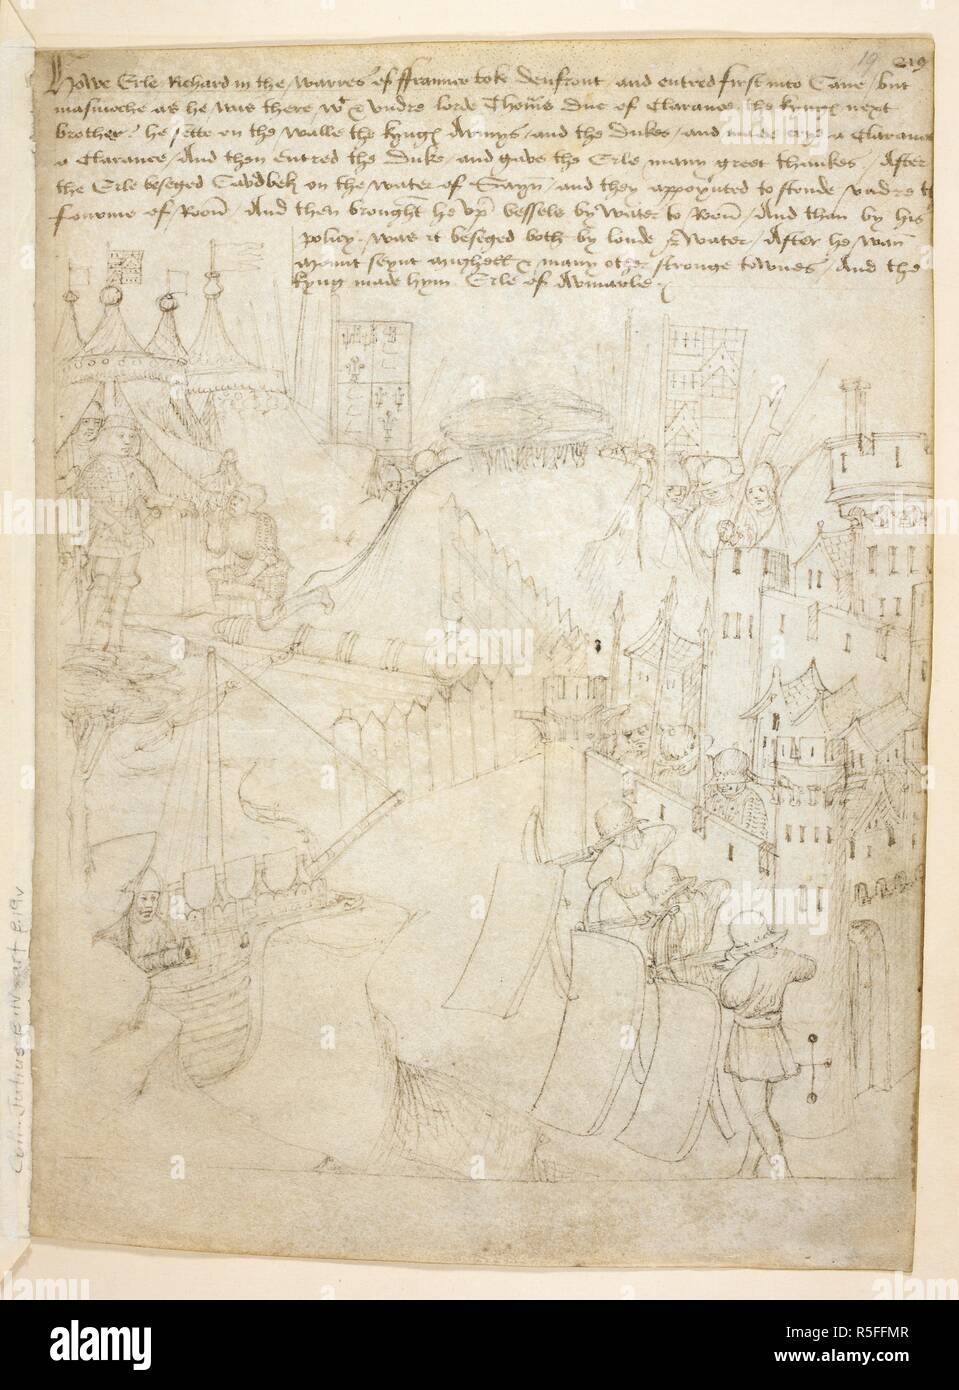 19 219
Howe Erle Richard in the warres of ffraunce toke denfront and entred first into Cane / but
masmoche as he was there wt & undre lorde Thoms Duc of Clarance the kyngꝭ next
brother / he sette on the walle the kyngꝭ Armys / and the Dukes / and made crye a Clarance
a Clarance / And then entred the Duke and gave the Erle many greet thankes / After
the Erle beseged Caudbek on the water of Sayn / and they appoynted to stonde undre the
fourme of Roon / And then brought he up vessels by water to Roon / And than by his
policy was it beseged both by londe & water / After he wan
mount seynt mighell & many other stronge townes / And the
kyng made hym Erle of Aumarle
Cott. Julius E IV art 6 f.19v
alamy
Image ID: R5FFMR
www.alamy.com